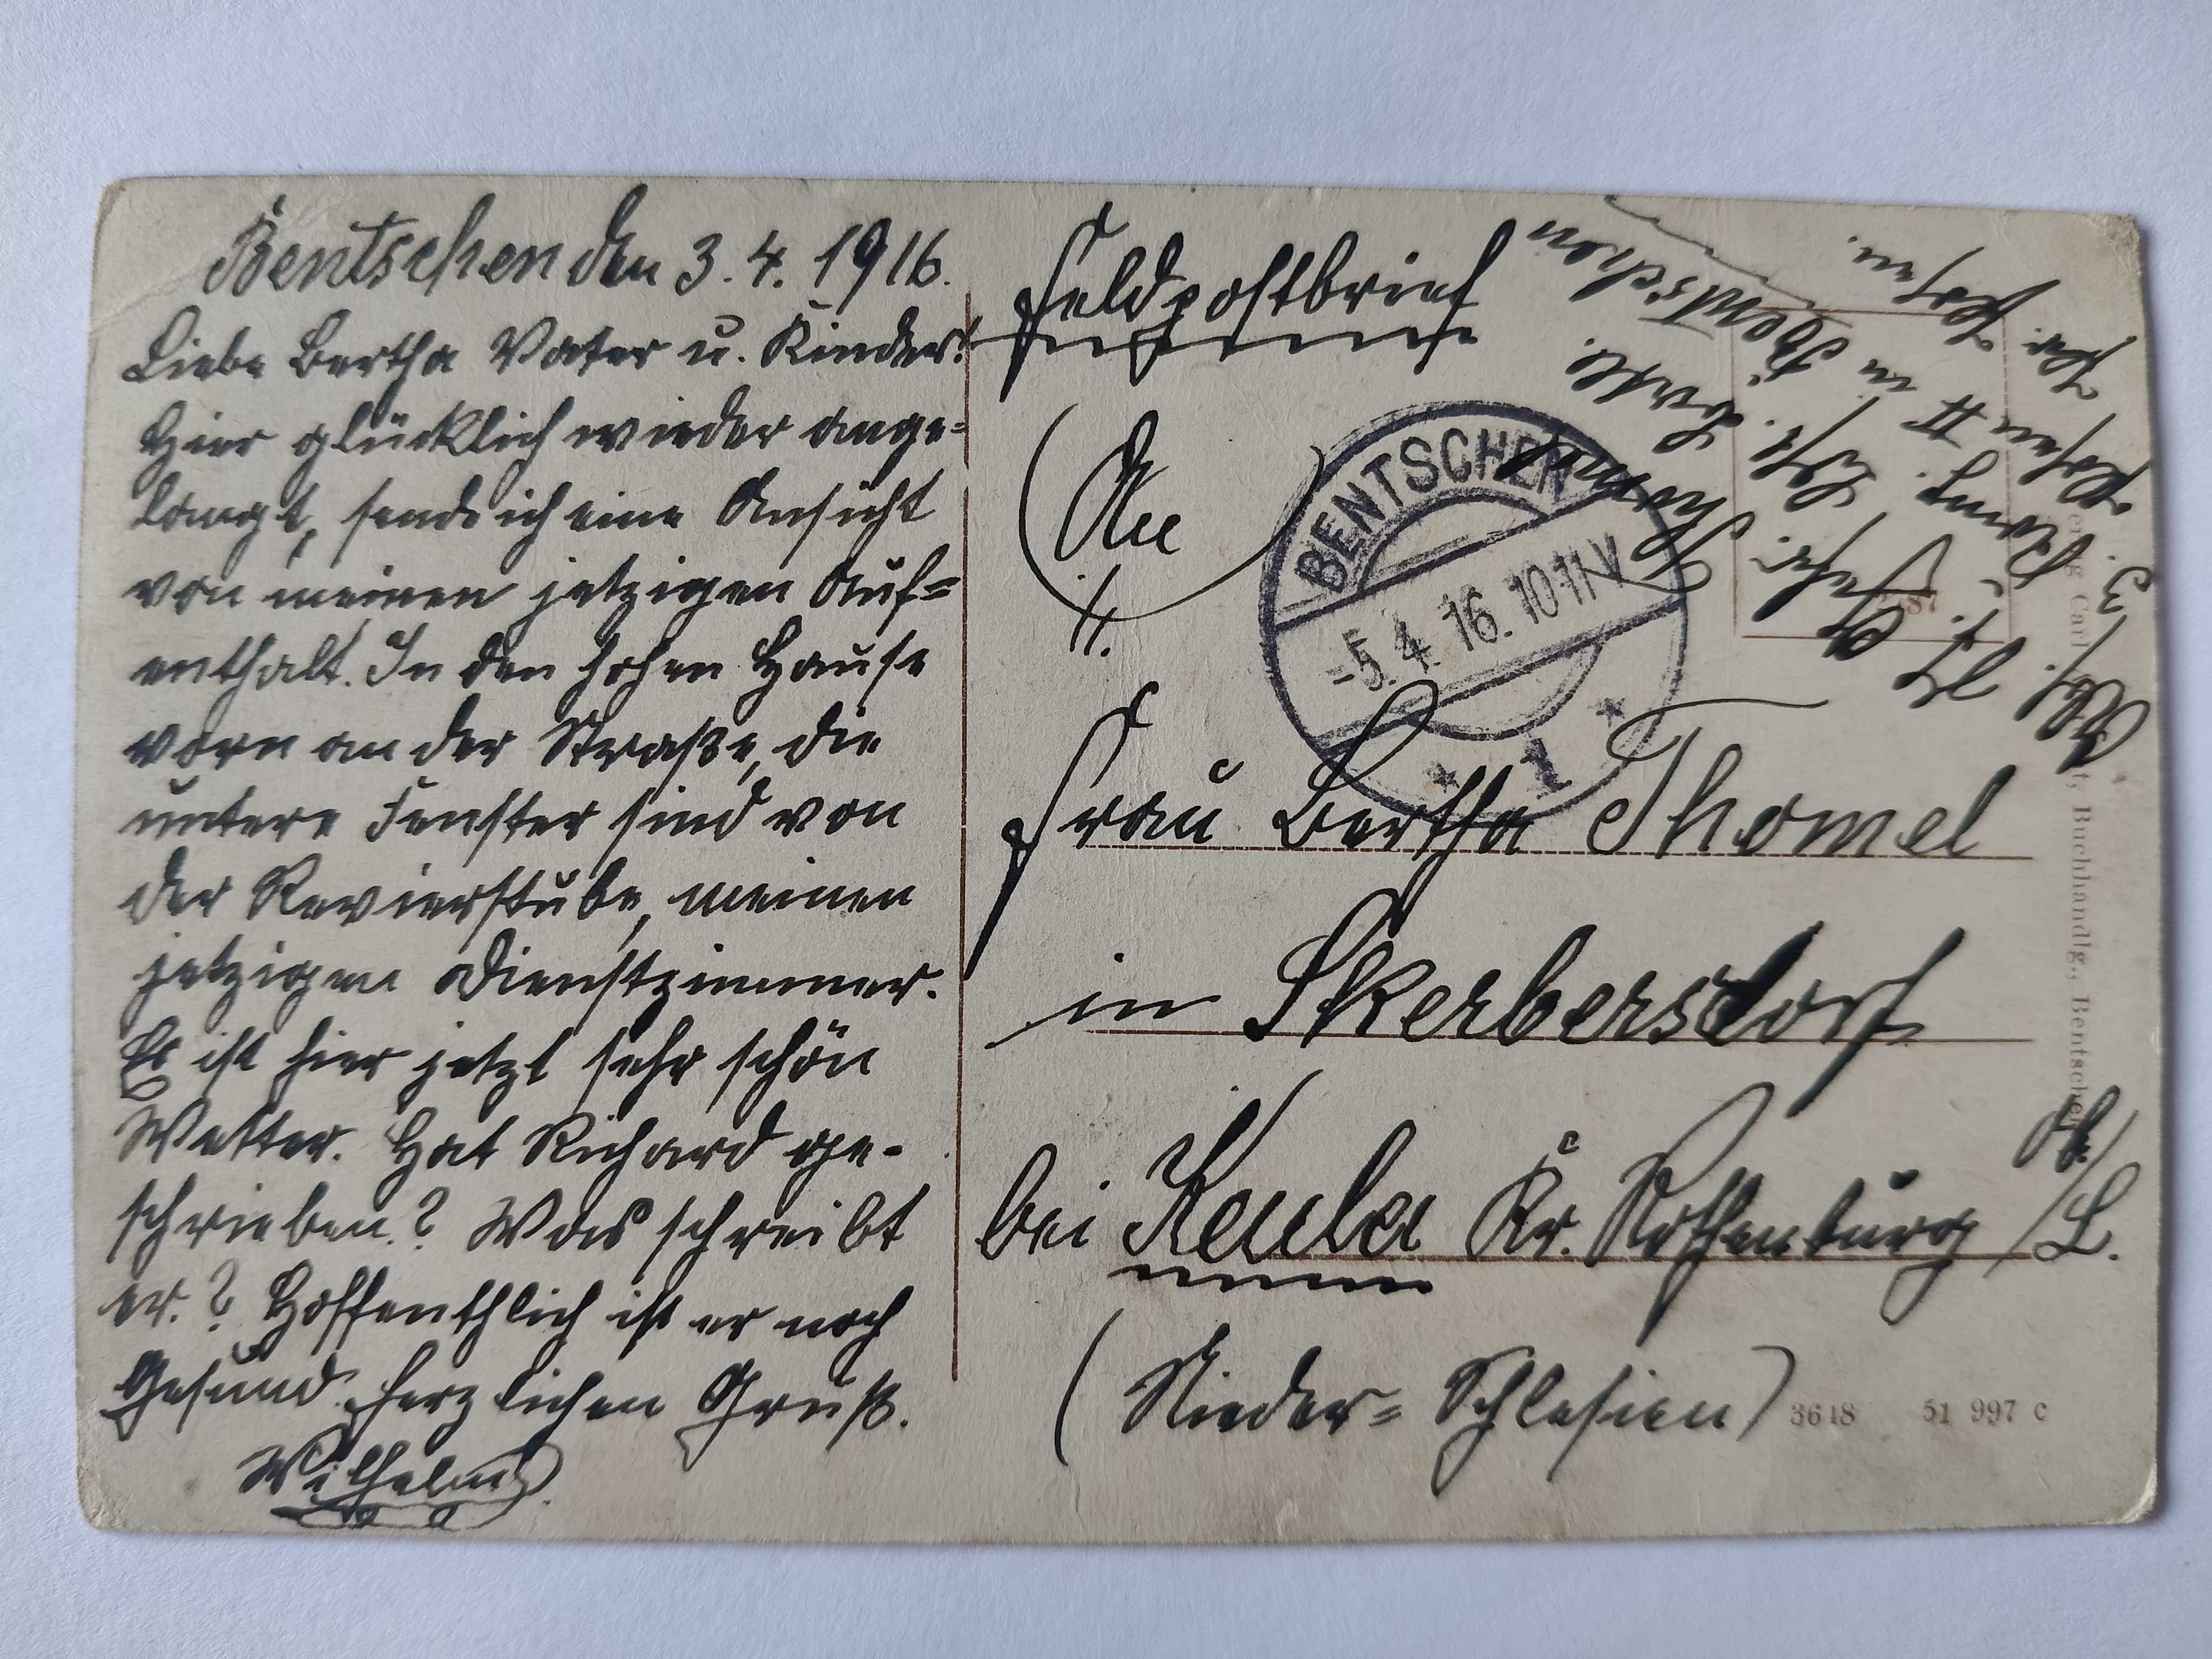 Bentschen den 3.4.1916.
Liebe Bertha Vater u. Kinder!
Hier glücklich wieder ange=
langt, sende ich eine Ansicht
von meinen jetzigen Auf=
enthalt. In den hohen Hause
vorn an der Straße, die
untere Fenster sind von
der Revierstube, meinen
jetzigen Dienstzimmer.
Es ist hier jetzt sehr schön
Wetter. Hat Richard ge-
schrieben? Was schreibt
er.? Hoffenthlich ist er noch
Gesund. Herzlichen Gruß.
Wilhelm
Feldpostbrief
An
Frau Bertha Thomel
in Skerbersdorf
bei Keula Kr. Rothenburg /L.
Ob/
(Nieder= Schlesien)
Thomel
Bentschen
Posen II in
Pr. Posen.
BENTSCHEN
-5.4.16.10-11V
* 1 *
Buchhandlg., Bentschen
3618 51 997 c